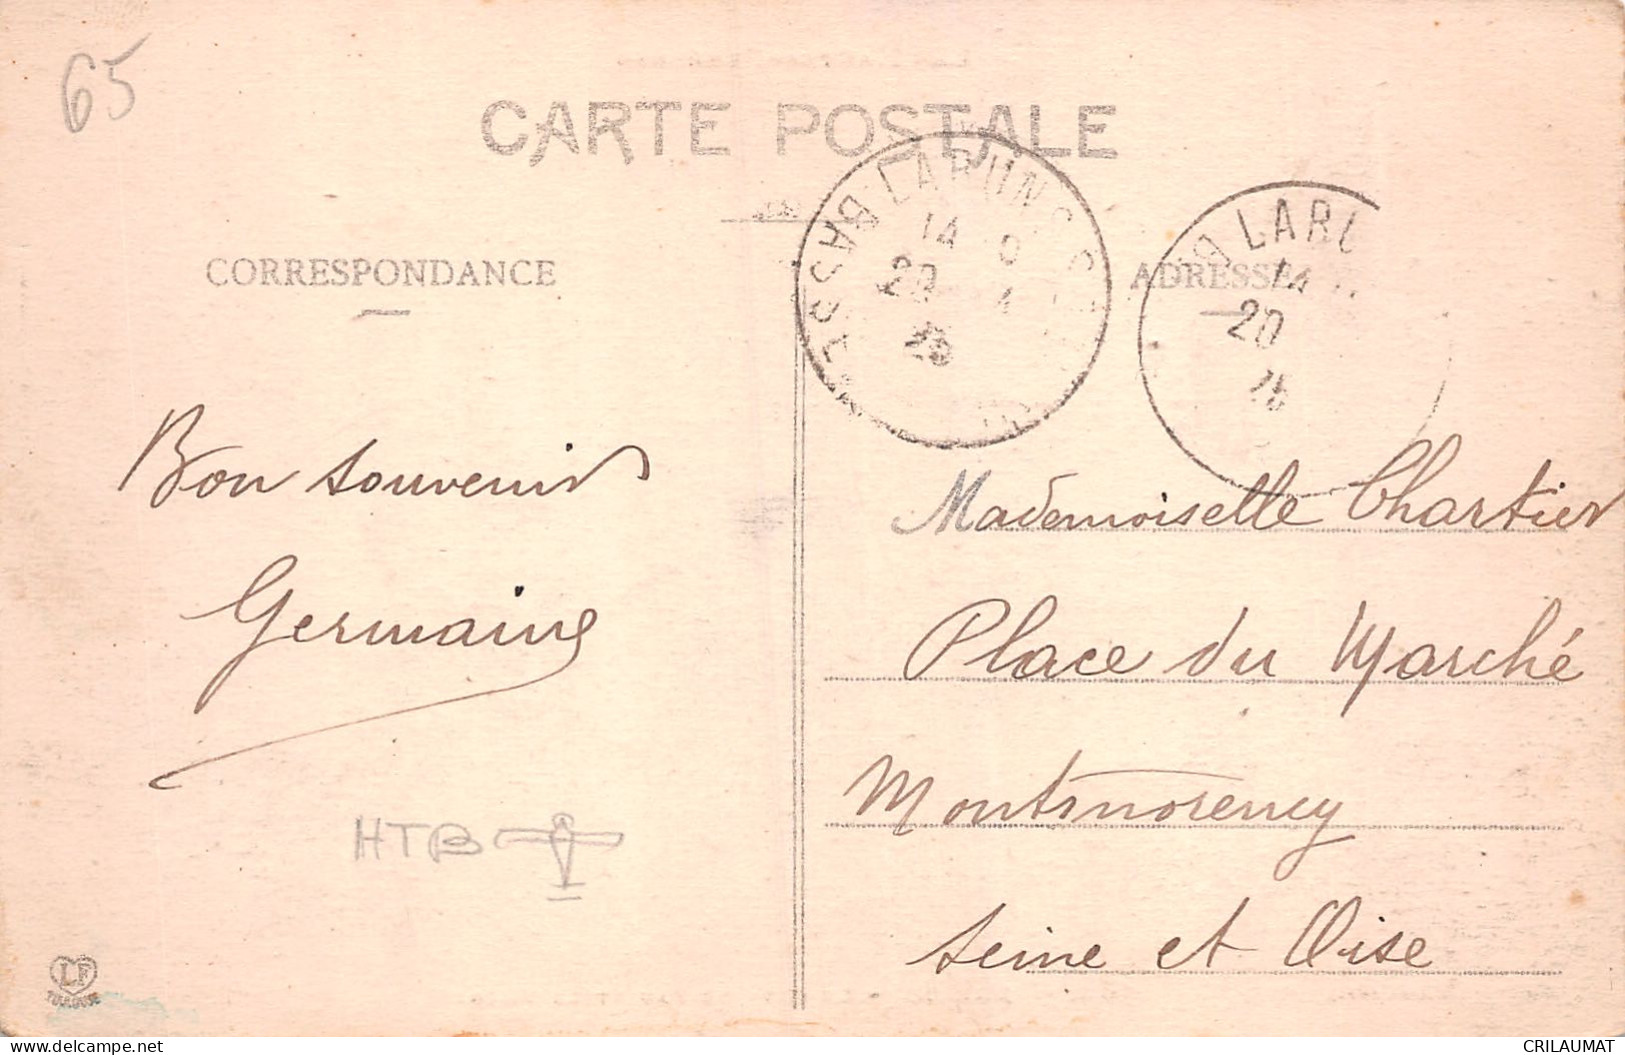 65
CARTE POSTALE
CORRESPONDANCE
ADRESSE
LARUNS
14
20
BASSES
LARU
14
20
Bon souvenir
Germaine
HTB
Mademoiselle Chartier
Place du Marché
Montmorency
Seine et Oise
LF
TOULOUSE
www.delcampe.net
CRILAUMAT